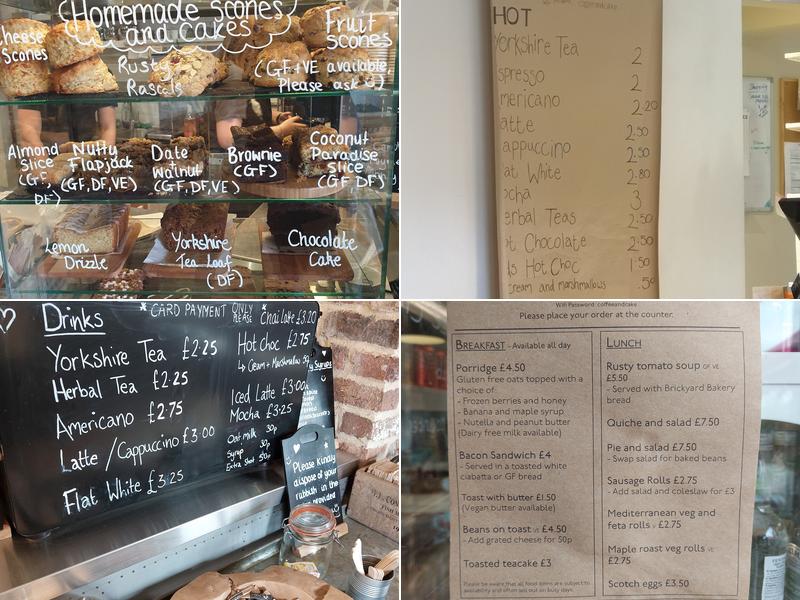 Homemade scones
and cakes
Cheese
Scones
Rusty
Rascals
Fruit
scones
(GF+VE available
Please ask )
Almond
Slice
(GF,
DF)
Nutty
Flapjack
(GF,DF,VE)
Date
Walnut
(GF,DF,VE)
Brownie
(GF)
Coconut
Paradise
slice
(GF, DF)
Lemon
Drizzle
Yorkshire
Tea Loaf
(DF)
Chocolate
Cake
HOT
Yorkshire Tea 2
spresso 2
mericano 2.20
atte 2.50
appuccino 2.50
at White 2.80
ocha 3
erbal Teas 2.50
ot Chocolate 2.50
ds Hot Choc 1.50
cream and marshmallows .50
Drinks
*CARD PAYMENT ONLY PLEASE*
Yorkshire Tea £2.25
Herbal Tea £2.25
Americano £2.75
Latte/Cappuccino £3.00
Flat White £3.25
Chai latte £3.20
Hot Choc £2.75
↳ Cream + Marshmallow 50p
Iced Latte £3.00
Mocha £3.25
Oat milk 30p
Syrup 30p
Extra Shot 50p
Syrups
Please Kindly
dispose of your
rubbish in the
provided
Wifi Password: coffeeandcake
Please place your order at the counter.
BREAKFAST - Available all day
Porridge £4.50
Gluten free oats topped with a
choice of:
- Frozen berries and honey
- Banana and maple syrup
- Nutella and peanut butter
(Dairy free milk available)
Bacon Sandwich £4
- Served in a toasted white
ciabatta or GF bread
Toast with butter £1.50
(Vegan butter available)
Beans on toast VE £4.50
- Add grated cheese for 50p
Toasted teacake £3
Please be aware that all food items are subject to
availability and often sell out on busy days.
LUNCH
Rusty tomato soup GF VE
£5.50
- Served with Brickyard Bakery
bread
Quiche and salad £7.50
Pie and salad £7.50
- Swap salad for baked beans
Sausage Rolls £2.75
- Add salad and coleslaw for £3
Mediterranean veg and
feta rolls V £2.75
Maple roast veg rolls VE
£2.75
Scotch eggs £3.50